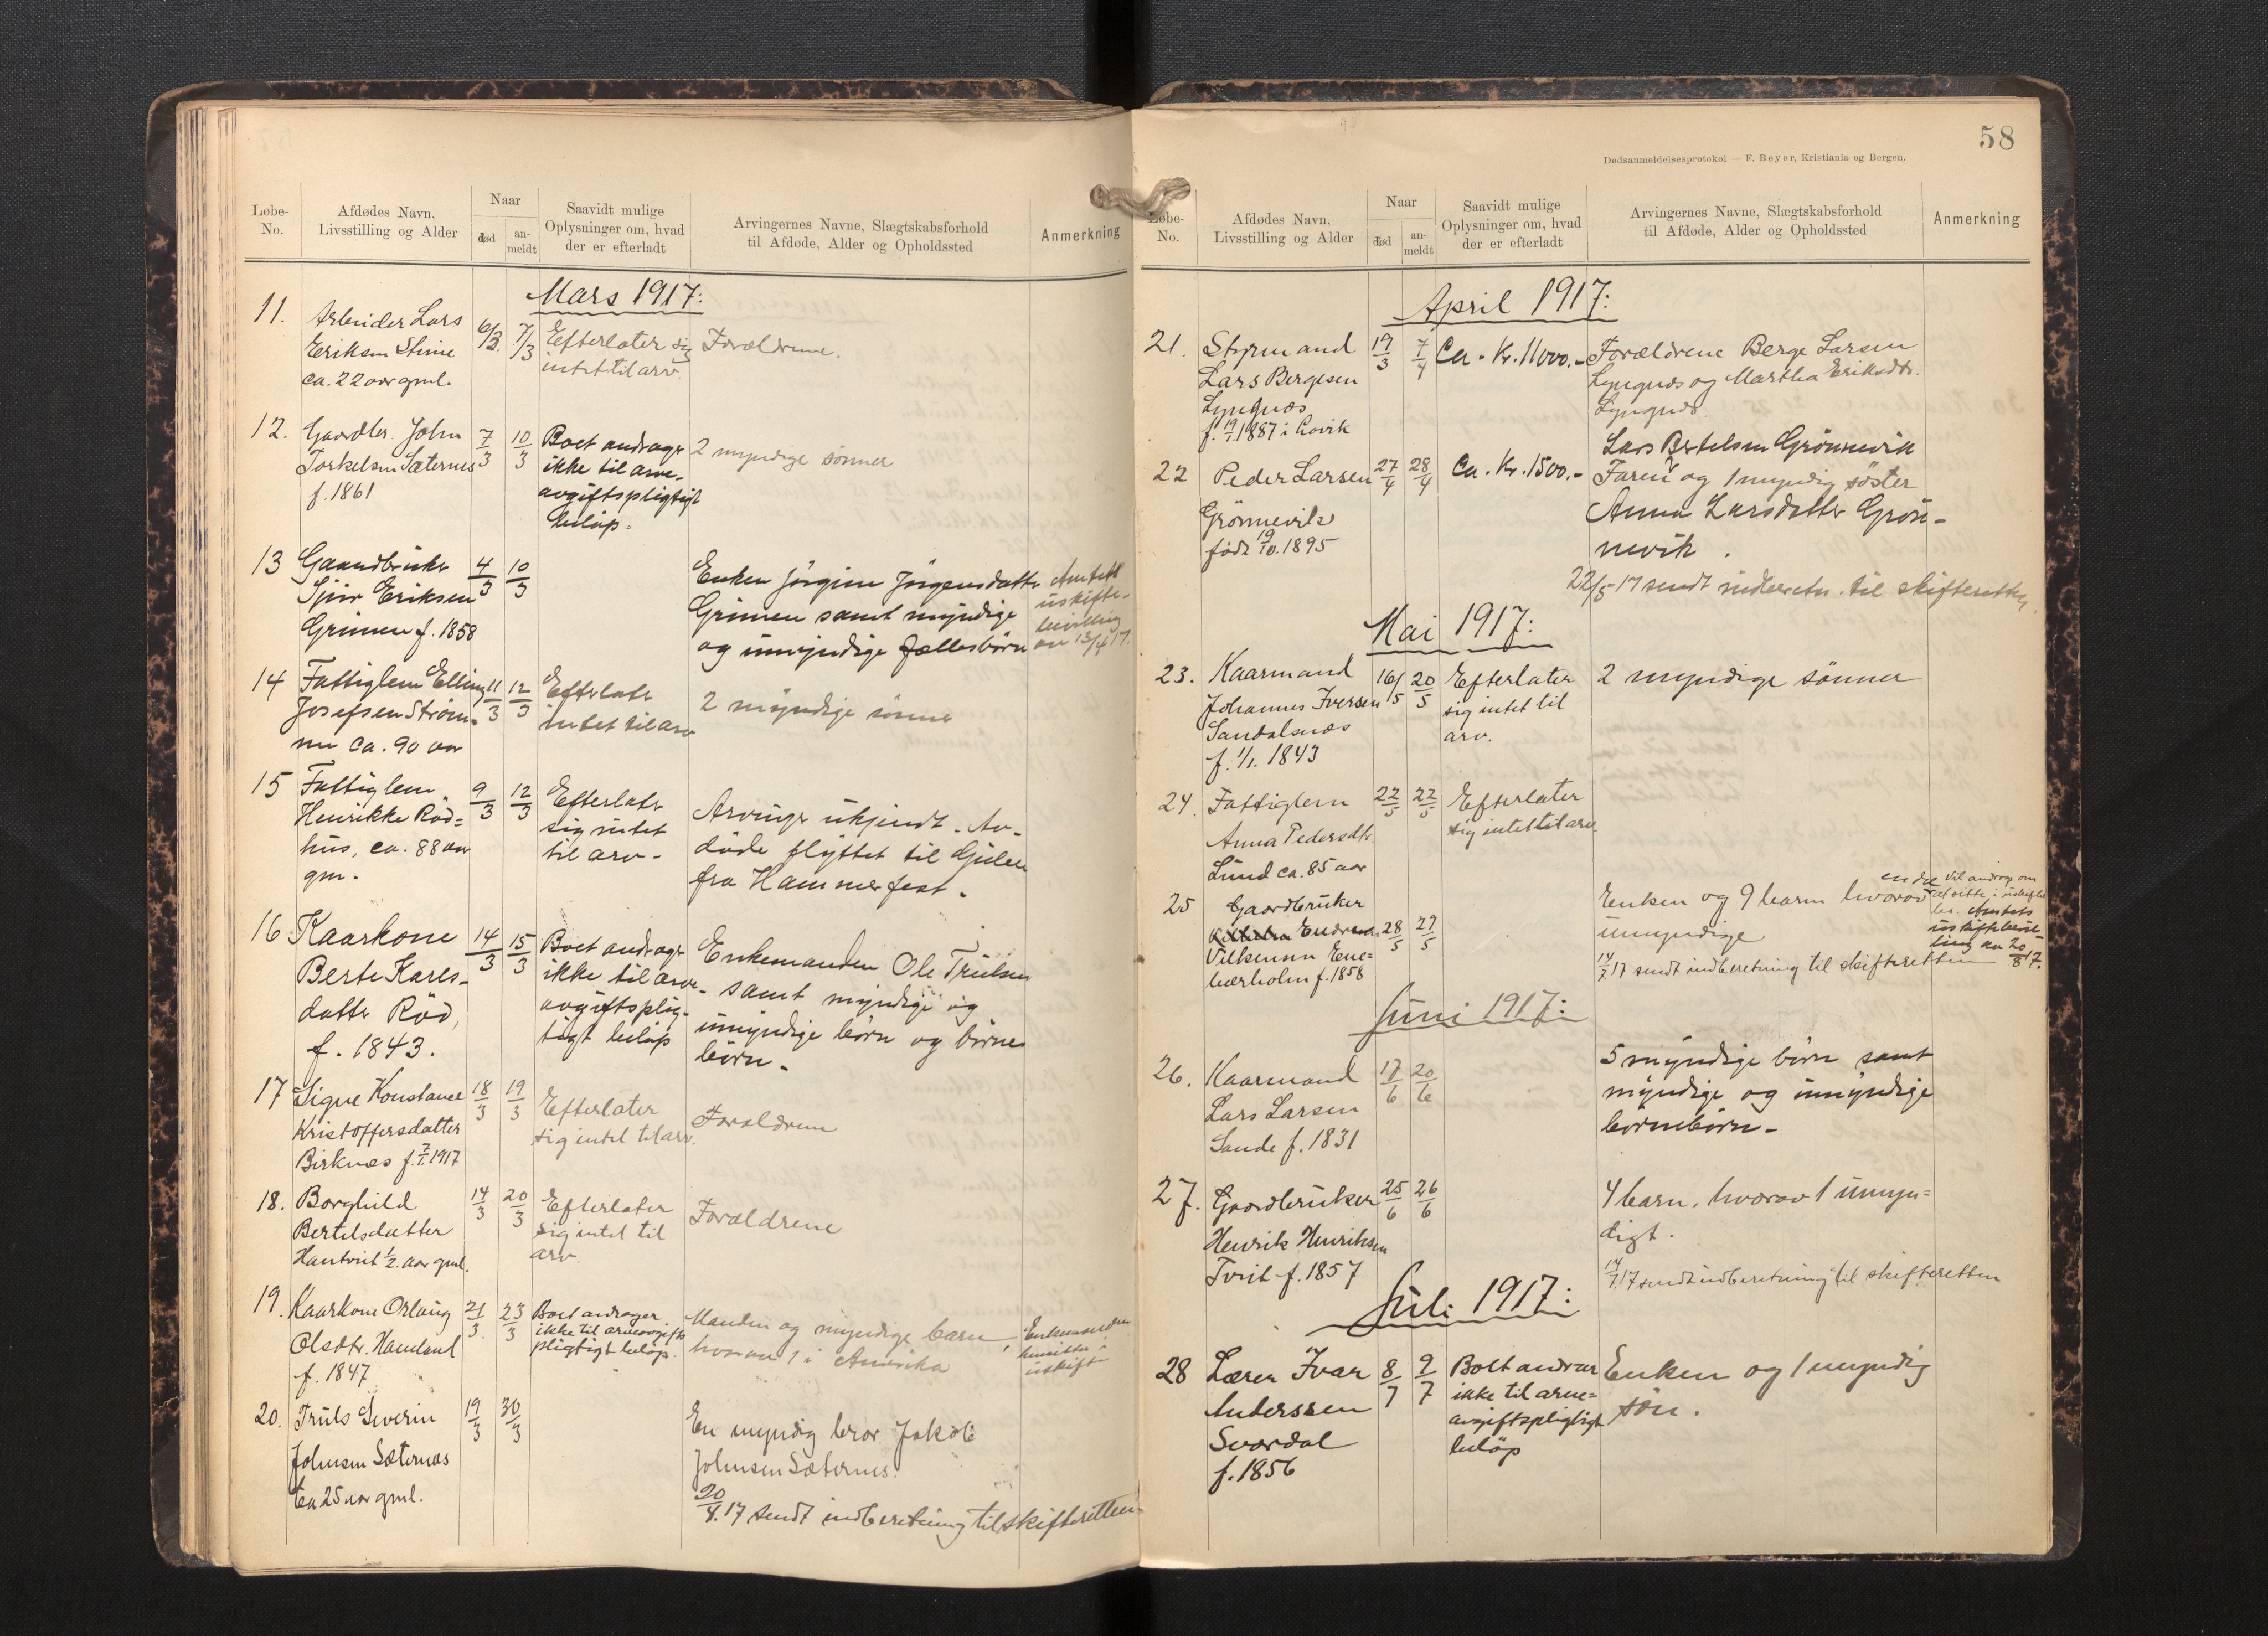 Løbe-
No.
Afdødes Navn,
Livsstilling og Alder
Naar
død
an-
meldt
Saavidt mulige
Oplysninger om, hvad
der er efterladt
Arvingernes Navne, Slægtskabsforhold
til Afdøde, Alder og Opholdssted
Anmerkning
Mars 1917:
11. Arbeider Lars
Eriksen Steine
ca. 22 aar gml.
6/3. 7/3
Efterlater sig
intet til arv.
Forældrene.
12. Gaardbr. John
Torkelsen Sæternes
f. 1861
7/3 10/3
Boet andrager
ikke til arve-
avgiftspligtigt
beløp.
2 myndige sønner
13 Gaardbruker
Sjur Eriksen
Grinen f. 1858
4/3 10/3
Enken Jörgine Jörgensdatter
Grinen samt myndige
og umyndige fællesbörn
Amtets
uskifte-
bevilling
av 13/4 17.
14 Fattiglem Elling
Josefsen Ström-
me ca. 90 aar
11/3 12/3
Efterlater
intet til arv
2 myndige sönner
15 Fattiglem
Henrikke Röd=
hus, ca. 88 aar
gm.
9/3 12/3
Efterlater
sig intet
til arv.
Arvinger ukjendt. Av-
döde flyttet til Gulen
fra Hammerfest.
16 Kaarkone
Berte Karls-
datter Röd,
f. 1843.
14/3 15/3
Boet andrager
ikke til arve-
avgiftsplig-
tigt beløp
Enkemanden Ole Trulsen
samt myndige og
umyndige börn og börne
börn.
17 Signe Konstanse
Kristoffersdatter
Birknes f. 7/1. 1917
18/3 19/3
Efterlater
sig intet til arv.
Forældrene
18. Borghild
Bertelsdatter
Hantveit 1/2. aar gml.
14/3 20/3
Efterlater
sig intet til
arv.
Forældrene
19. Kaarkone Orlaug
Olsdtr. Haveland
f. 1847
21/3. 23/3
Boet andrager
ikke til arveavgifts
pligtigt beløp.
Manden og myndige barn,
hvorav 1 i Amerika
Enkemanden
hensitter i
uskifte
20. Truls Severin
Johnsen Sæternes
ca 25 aar gml.
19/3 30/3
En myndig bror Jakob
Johnsen Sæternes.
20/4. 17 sendt indberetning til skifteretten
58
Dødsanmeldelsesprotokol — F. Beyer, Kristiania og Bergen.
Løbe-
No.
Afdødes Navn,
Livsstilling og Alder
Naar
død
an-
meldt
Saavidt mulige
Oplysninger om, hvad
der er efterladt
Arvingernes Navne, Slægtskabsforhold
til Afdøde, Alder og Opholdssted
Anmerkning
April 1917:
21. Styrmand
Lars Bergesen
Lyngnes
f. 19/1. 1887 i Lavik
19/3 7/4
Ca. Kr. 11000.-
Forældrene Berge Larsen
Lyngnes og Martha Eriksdtr.
Lyngnes.
22 Peder Larsen
Grönnevik
född 19/10. 1895
27/4 28/4
Ca. Kr. 1500.-
Lars Bertelsen Grönnevik
Faren og 1 myndig söster
Anna Larsdatter Grön-
nevik.
22/5 17 sendt indberetn. til skifteretten.
Mai 1917:
23. Kaarmand
Johannes Iversen
Sandalsnes
f. 1/1. 1843
16/5 20/5
Efterlater
sig intet til
arv.
2 myndige sönner
24. Fattiglem
Anna Pedersdtr.
Lund ca. 85 aar
22/5 22/5
Efterlater
sig intet til arv.
25 Gaardbruker
Vilhelm Endre
Vilhelmsen Ene=
bærholm f. 1858
28/5 29/5
endel
Enken og 9 barn hvorav
umyndige
14/7. 17 sendt indberetning til skifteretten
Vil andrage om
at sitte i uskiftet
bo. Amtets
uskiftebevil-
ling av 20/8 17.
Juni 1917:
26. Kaarmand
Lars Larsen
Sande f. 1831
17/6 20/6
5 myndige börn samt
myndige og umyndige
börnebörn.
27. Gaardbruker
Henrik Henriksen
Tveit f. 1857
25/6 26/6
4 barn, hvorav 1 umyn=
digt.
14/7. 17 sendt indberetning til skifteretten
Juli 1917:
28 Lærer Ivar
Anderssen
Svardal
f. 1856
8/7 9/7
Boet andrar
ikke til arve=
avgiftspligtigt
beløp
Enken og 1 myndig
sön.